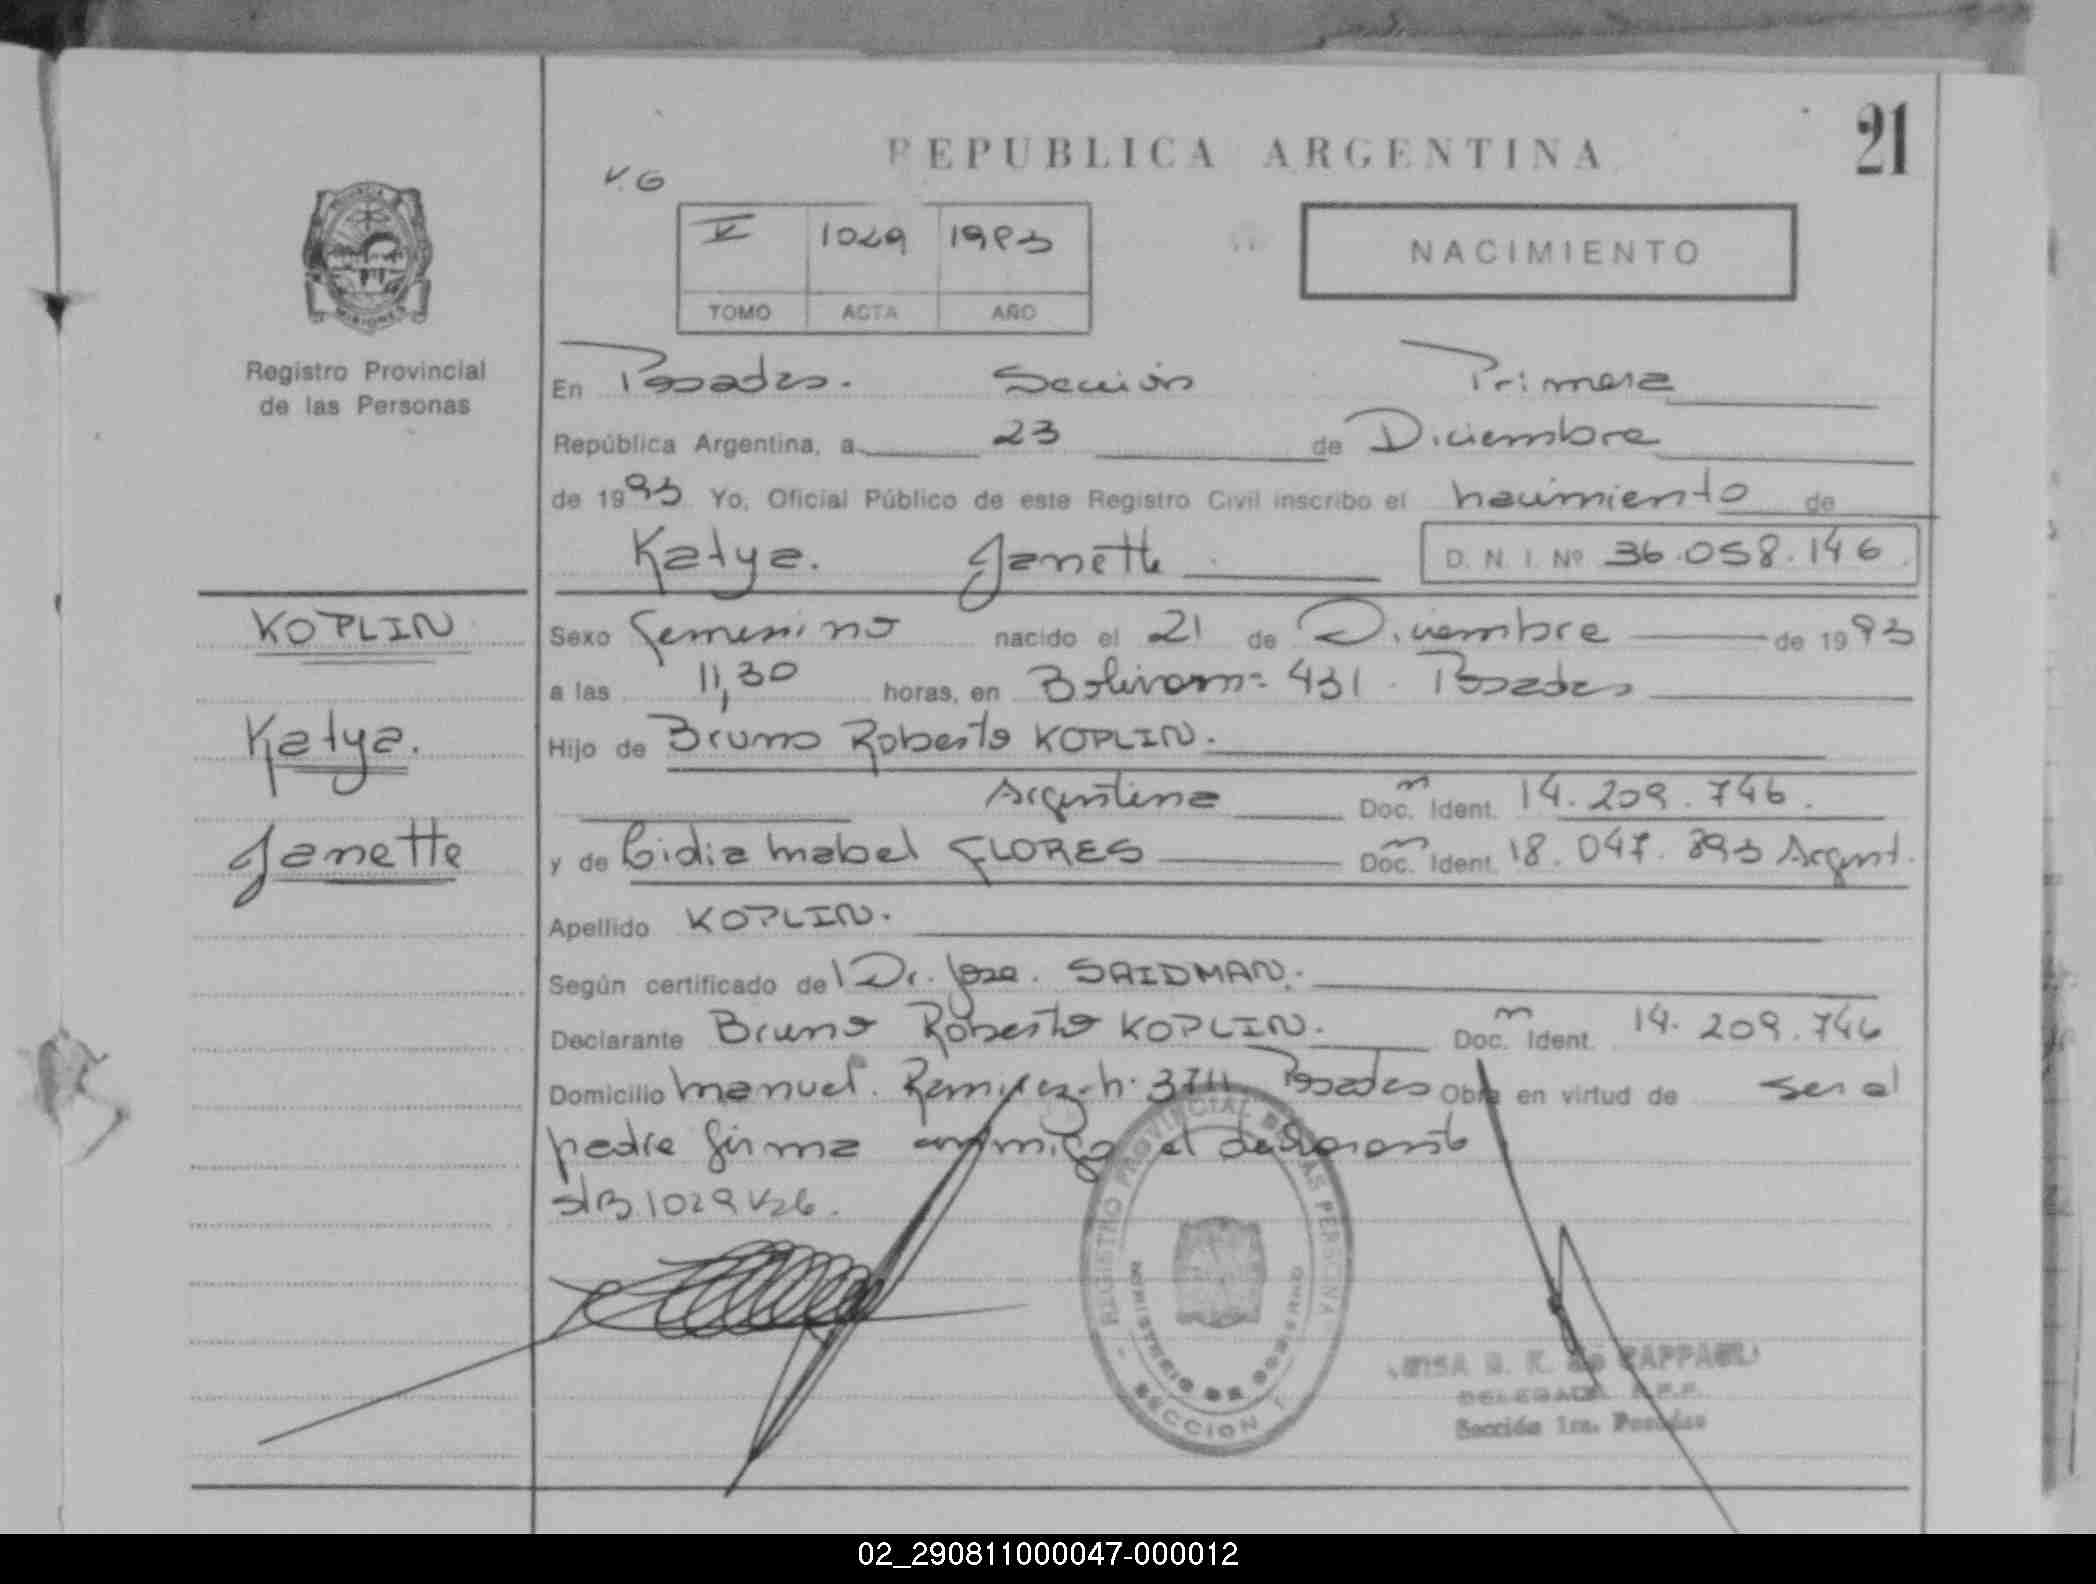 REPUBLICA ARGENTINA
21
V. G
V 1029 1993
TOMO ACTA AÑO
NACIMIENTO
PROVINCIA
MISIONES
Registro Provincial
de las Personas
En Posadas. Sección Primera
República Argentina, a 23 de Diciembre
de 1993 Yo, Oficial Público de este Registro Civil inscribo el nacimiento de
Katya. Janette D. N. I. Nº 36.058.146
KOPLIN
Katya.
Janette
Sexo femenino nacido el 21 de Diciembre de 1993
a las 11,30 horas, en Bolivar n= 431. Posadas
Hijo de Bruno Roberto KOPLIN.
Argentina Doc. Ident. 14.209.746.
y de Lidia Mabel FLORES Doc. Ident. 18.047.893 Argent.
Apellido KOPLIN.
Según certificado de Dr. Jose. SAIDMAN.
Declarante Bruno Roberto KOPLIN. Doc. Ident. 14.209.746
Domicilio Manuel. Ramirez n. 3711 Posadas Obra en virtud de ser el
padre firma conmigo el declarante
S/B. 1029 V26.
REGISTRO PROVINCIAL DE LAS PERSONAS
MINISTERIO DE GOBIERNO
SECCION 1
DELEGADA R.P.P.
Sección 1ra. Posadas
02_290811000047-000012